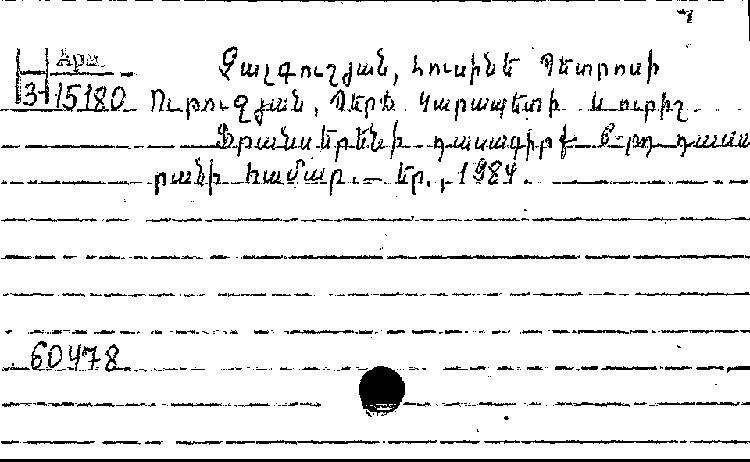 Արա
3-15180
Չալգուշյան, Լուսինե Պետրոսի
Ուրուզյան, Մերի Կարապետի և ուրիշ
Ֆրանսերենի դասագիրք 6-րդ դասա
րանի համար.— Եր., 1984.
60478